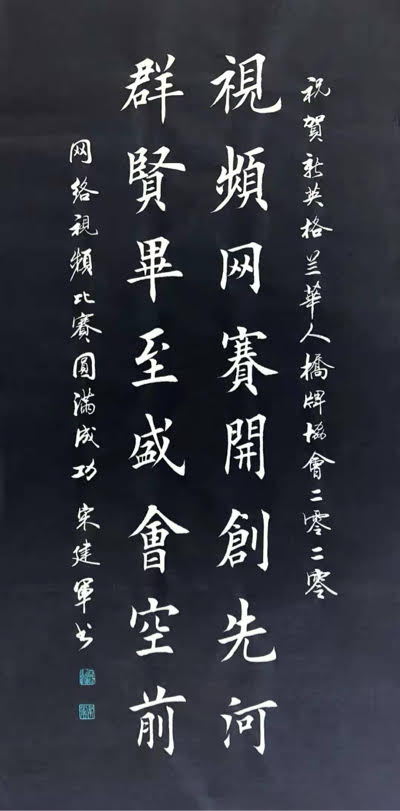 祝賀新英格兰華人橋牌協會二零二零
視頻网賽開創先河
群賢畢至盛會空前
网络視頻比賽圓滿成功 宋建軍书